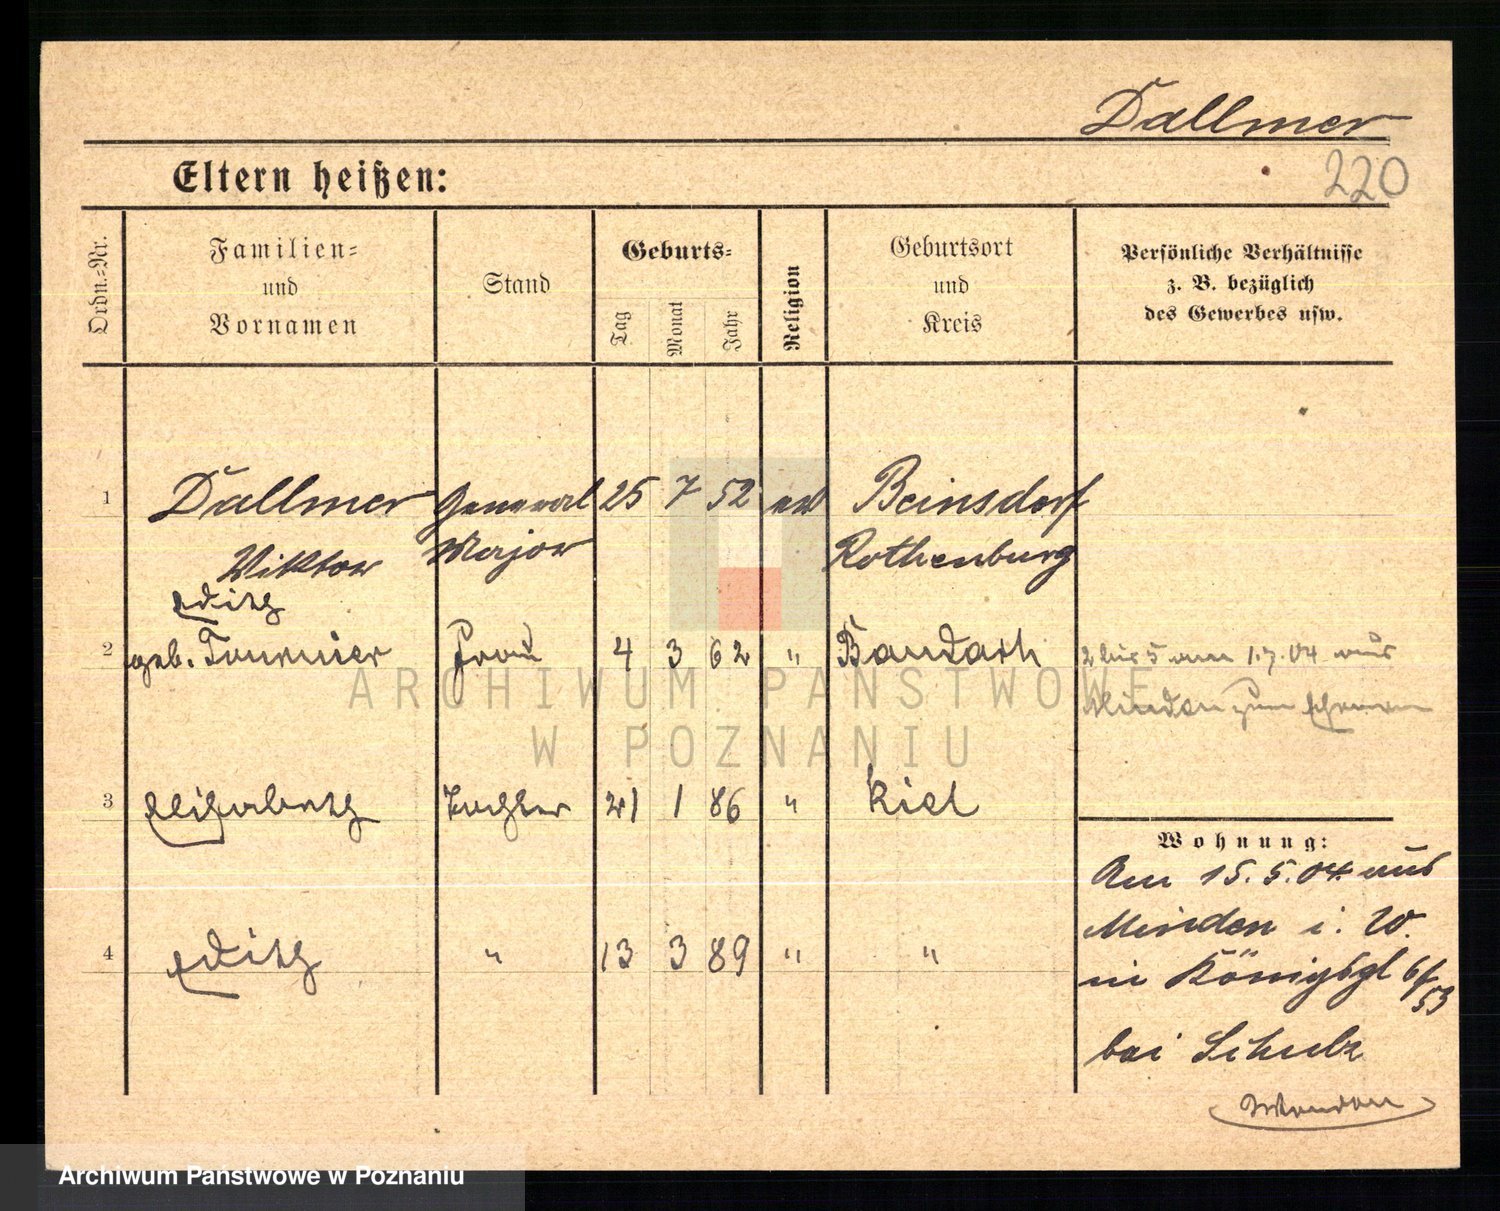 Dallmer
220
Eltern heißen:
Ordn.-Nr.
Familien-
und
Vornamen
Stand
Geburts-
Tag
Monat
Jahr
Religion
Geburtsort
und
Kreis
Persönliche Verhältnisse
z. B. bezüglich
des Gewerbes usw.
1 Dallmer General 25 7 52 ev Beinsdorf
Viktor Major Rothenburg
Edith
2 geb. Tournier Frau 4 3 62 " 2 bis 5 am 1.7.04 aus
Minden zum
3 Elisabeth Tochter 21 1 86 " Kiel
4 Edith " 13 3 89 " "
Wohnung:
Am 15.5.04 aus
Minden i. W.
in Königspl 6/
53
bei Schulz
ARCHIWUM PAŃSTWOWE
W POZNANIU
Archiwum Państwowe w Poznaniu